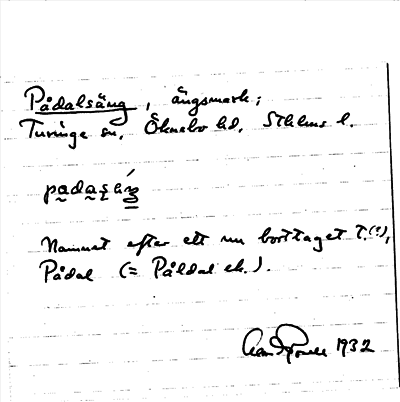 Pådalsäng, ängsmark;
Turinge sn, Öknebo hd, Sthlms l.
Namnet efter ett nu borttaget t.(?),
Pådal (= Påldal el.).
1932